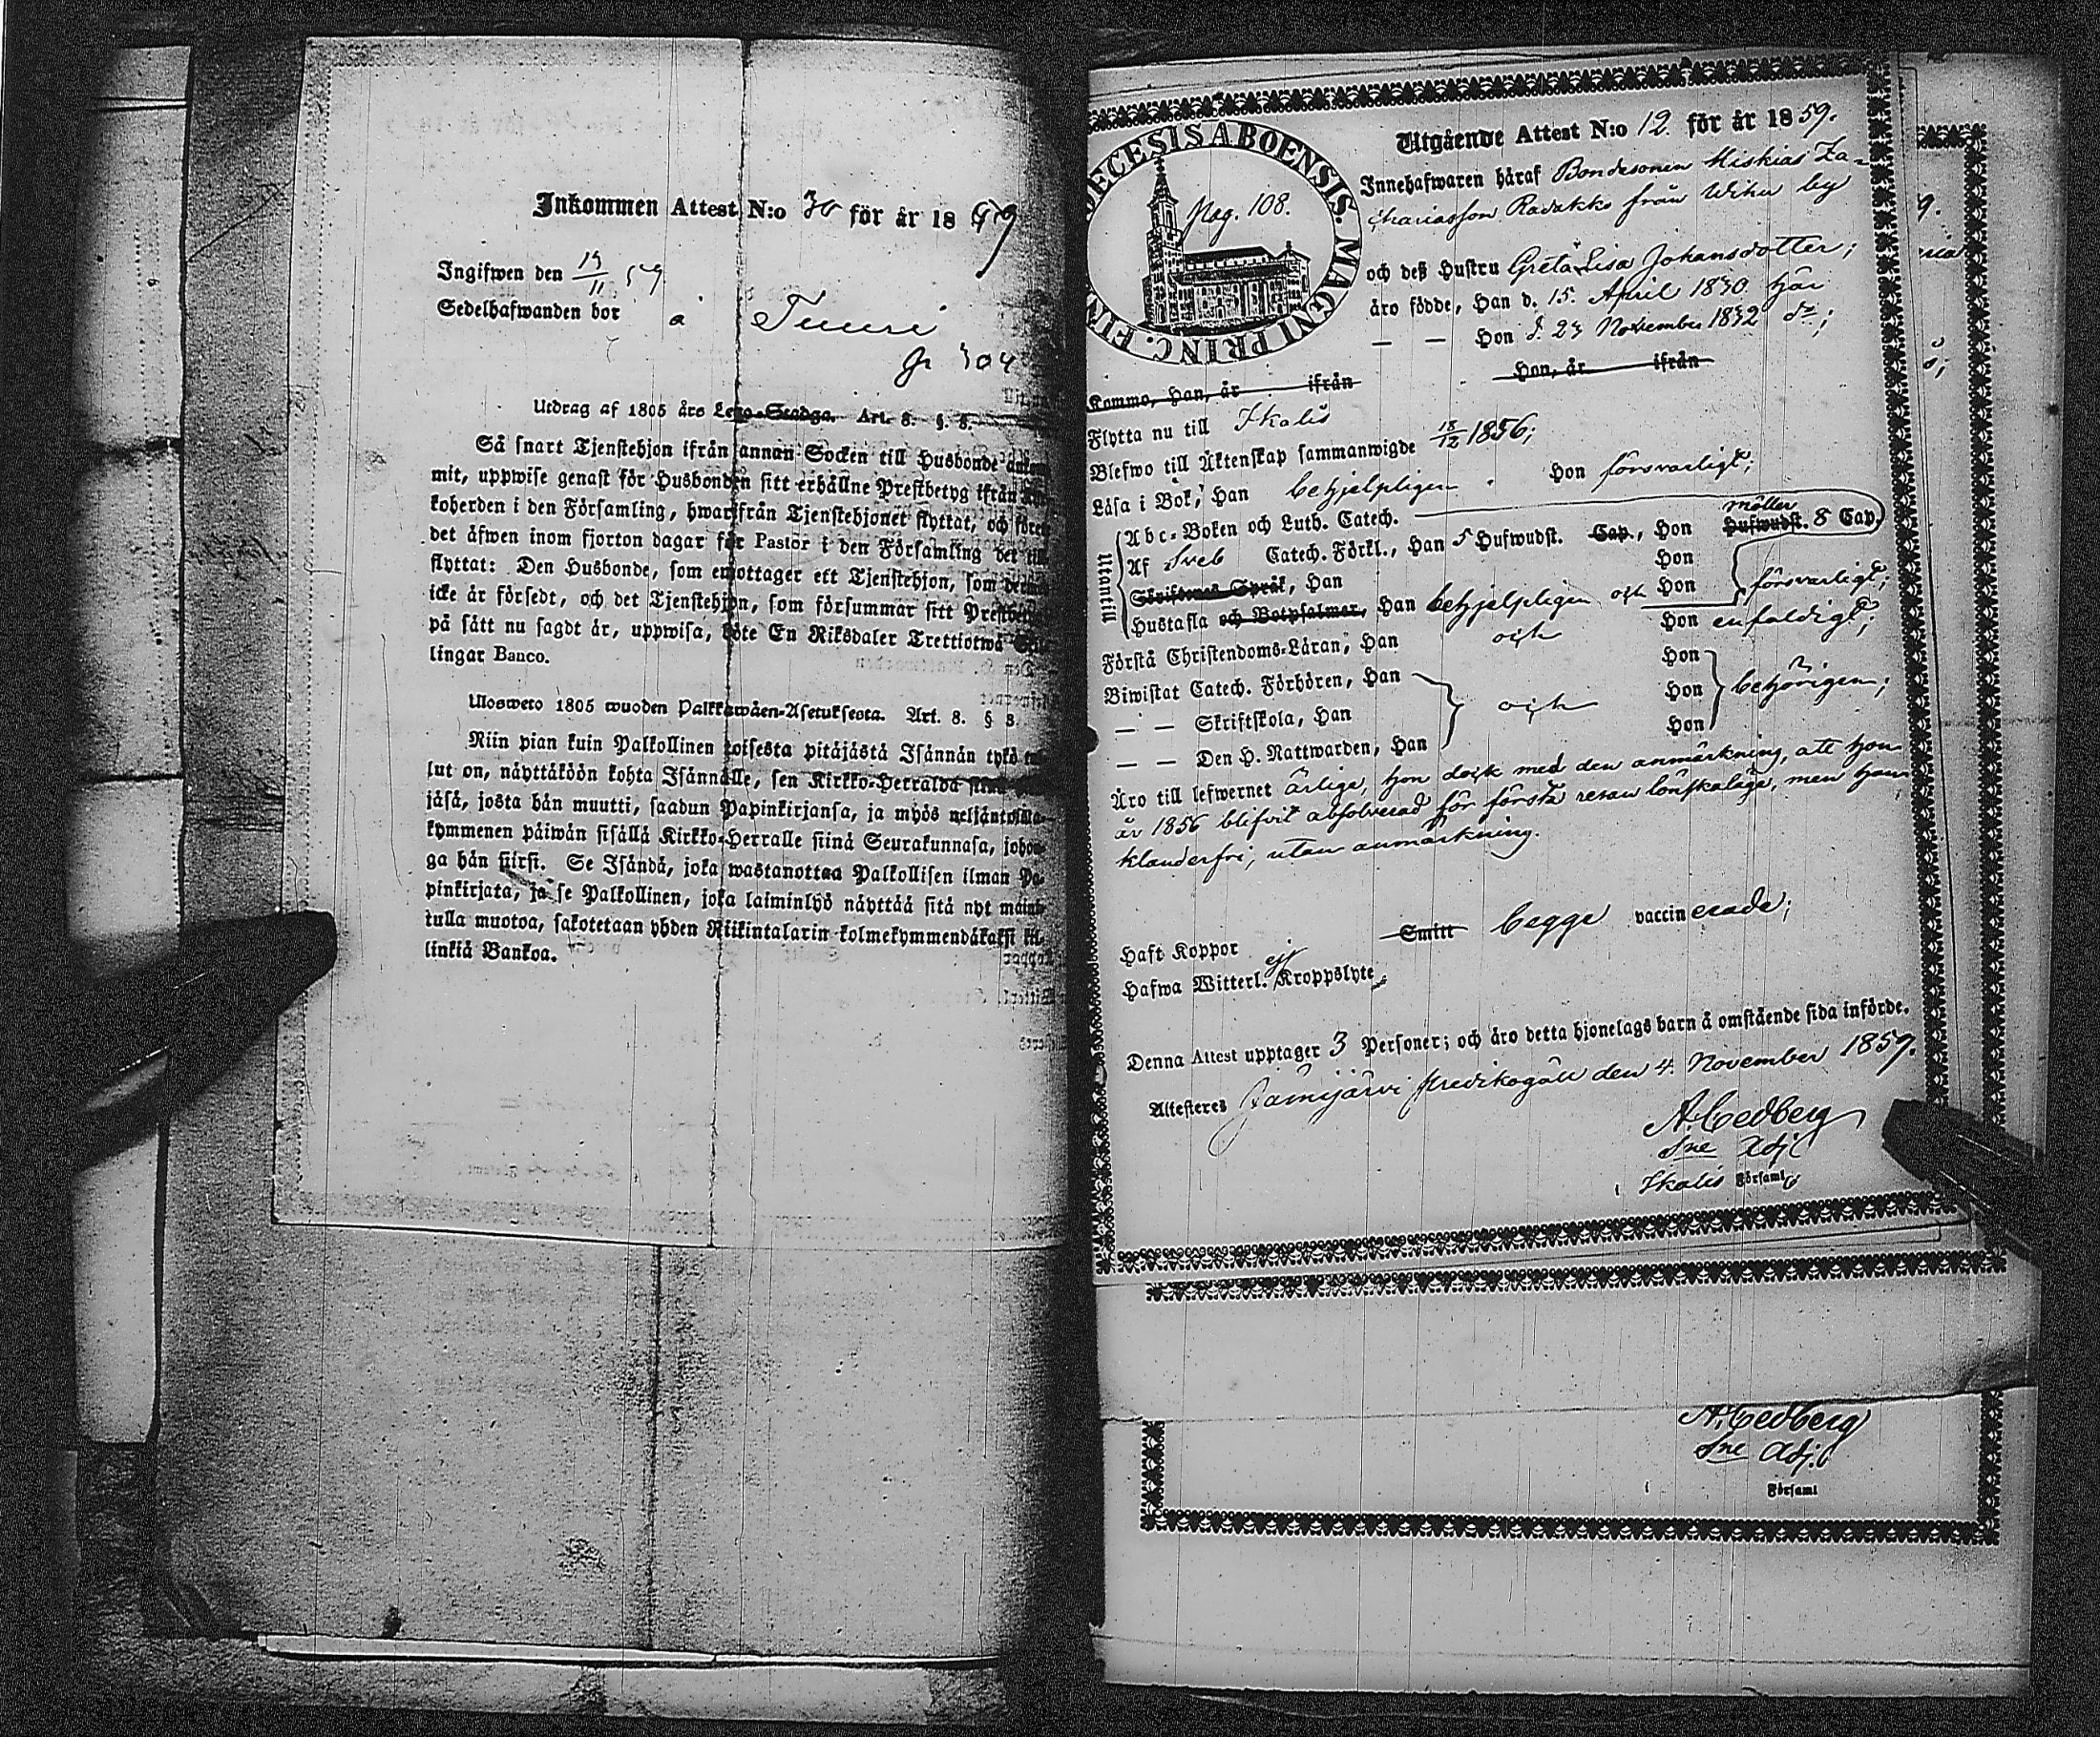 Inkommen Attest N:o 30 för år 1859
Ingifwen den 19/11 59
Sedelhafwanden bor å Tuuri
p 304
Utdrag af 1805 års Lego-Stadga. Art. 8. §. 8.
Så snart Tjenstehjon ifrån annan Socken till Husbonde
mit, uppwise genast för Husbonden sitt erhållne Prestbetyg ifrån
koherden i den Församling, hwarifrån Tjenstehjonet flyttat, och
det äfwen inom fjorton dagar för Pastor i den Församling det
flyttat: Den Husbonde, som emottager ett Tjenstehjon, som
icke är försedt, och det Tjenstehjon, som försummar sitt
på sätt nu sagdt är, uppwisa, böte En Riksdaler Trettiotwå
lingar Banco.
Ulosweto 1805 wuoden Palkkawäen-Asetuksesta. Art. 8. § 8.
Niin pian kuin Palkollinen toisesta pitäjästä Isännän tykö
lut on, näyttäköön kohta Isännälle, sen Kirkko-Herralda
jäsä, josta hän muutti, saadun Papinkirjansa, ja myös
kymmenen päiwän sisällä Kirkko-Herralle siinä Seurakunnasa,
ga hän siirsi. Se Isändä, joka wastanottaa Palkollisen ilman Pa-
pinkirjata, ja se Palkollinen, joka laiminlyö näyttää sitä nyt
tulla muotoa, sakotetaan yhden Riikintalarin kolmekymmendäkaksi kil-
linkiä Bankoa.
DIECESIS ABOENSIS. MAGNI PRINC. FIN
Pag. 108.
Utgående Attest N:o 12. för år 1859.
Innehafwaren häraf Bondesonen Hiskias Za-
chariasson Radakko från Wihu by
och deß Hustru Greta Lisa Johansdotter;
äro födde, Han d. 15. April 1830 här
— — Hon d. 23 November 1832 d:o;
Komme, Han, år ifrån Hon, år ifrån
Flytta nu till Ikalis
Blefwo till Äktenskap sammanwigde 18/12 1856;
Läsa i Bok, Han behjelpligen. Hon försvarligt;
Utantill
Abc-Boken och Luth. Catech.
Af Sveb Catech. Förkl., Han 5 Hufwudst. Cap., Hon möller Hufwudst. 8 Cap.
Skriftenes Språk, Han Hon
Hustafla och Botpsalmer, Han behjelpligen och Hon försvarligt;
Förstå Christendoms-Läran, Han och Hon enfaldigt;
Biwistat Catech. Förhören, Han Hon
— — Skriftskola, Han och Hon behörigen;
— — Den H. Nattwarden, Han Hon
Äro till lefwernet ärlige, hon dock med den anmärkning, att hon
år 1856 blifvit absolverad för första resan lönskaläge, men han
klanderfri, utan anmärkning.
Haft Koppor Smitt begge vaccinerade;
Hafwa Witterl. ej Kroppslyte.
Denna Attest upptager 3 Personer; och äro detta hjonelags barn å omstående sida införde.
Attesteres Jämijärvi predikogäll den 4. November 1859.
A. Cedberg
Sne Adj.
i Ikalis Församl.
A. Cedberg
Sne Adj.
i Församl